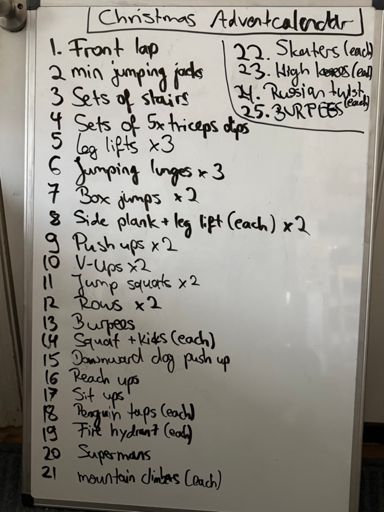 Christmas Adventcalendar
1. Front lap
2 min jumping jacks
3 Sets of stairs
4 Sets of 5x triceps dips
5 Leg lifts x3
6 Jumping lunges x3
7 Box jumps x2
8 Side plank + leg lift (each) x2
9 Push ups x2
10 V-Ups x2
11 Jump squats x2
12 Rows x2
13 Burpees
14 Squat + kicks (each)
15 Downward dog push up
16 Reach ups
17 Sit ups
18 Penguin taps (each)
19 Fire hydrant (each)
20 Supermans
21 mountain climbers (each)
22. Skaters (each)
23. High knees (each)
24. Russian twists (each)
25. BURPEES